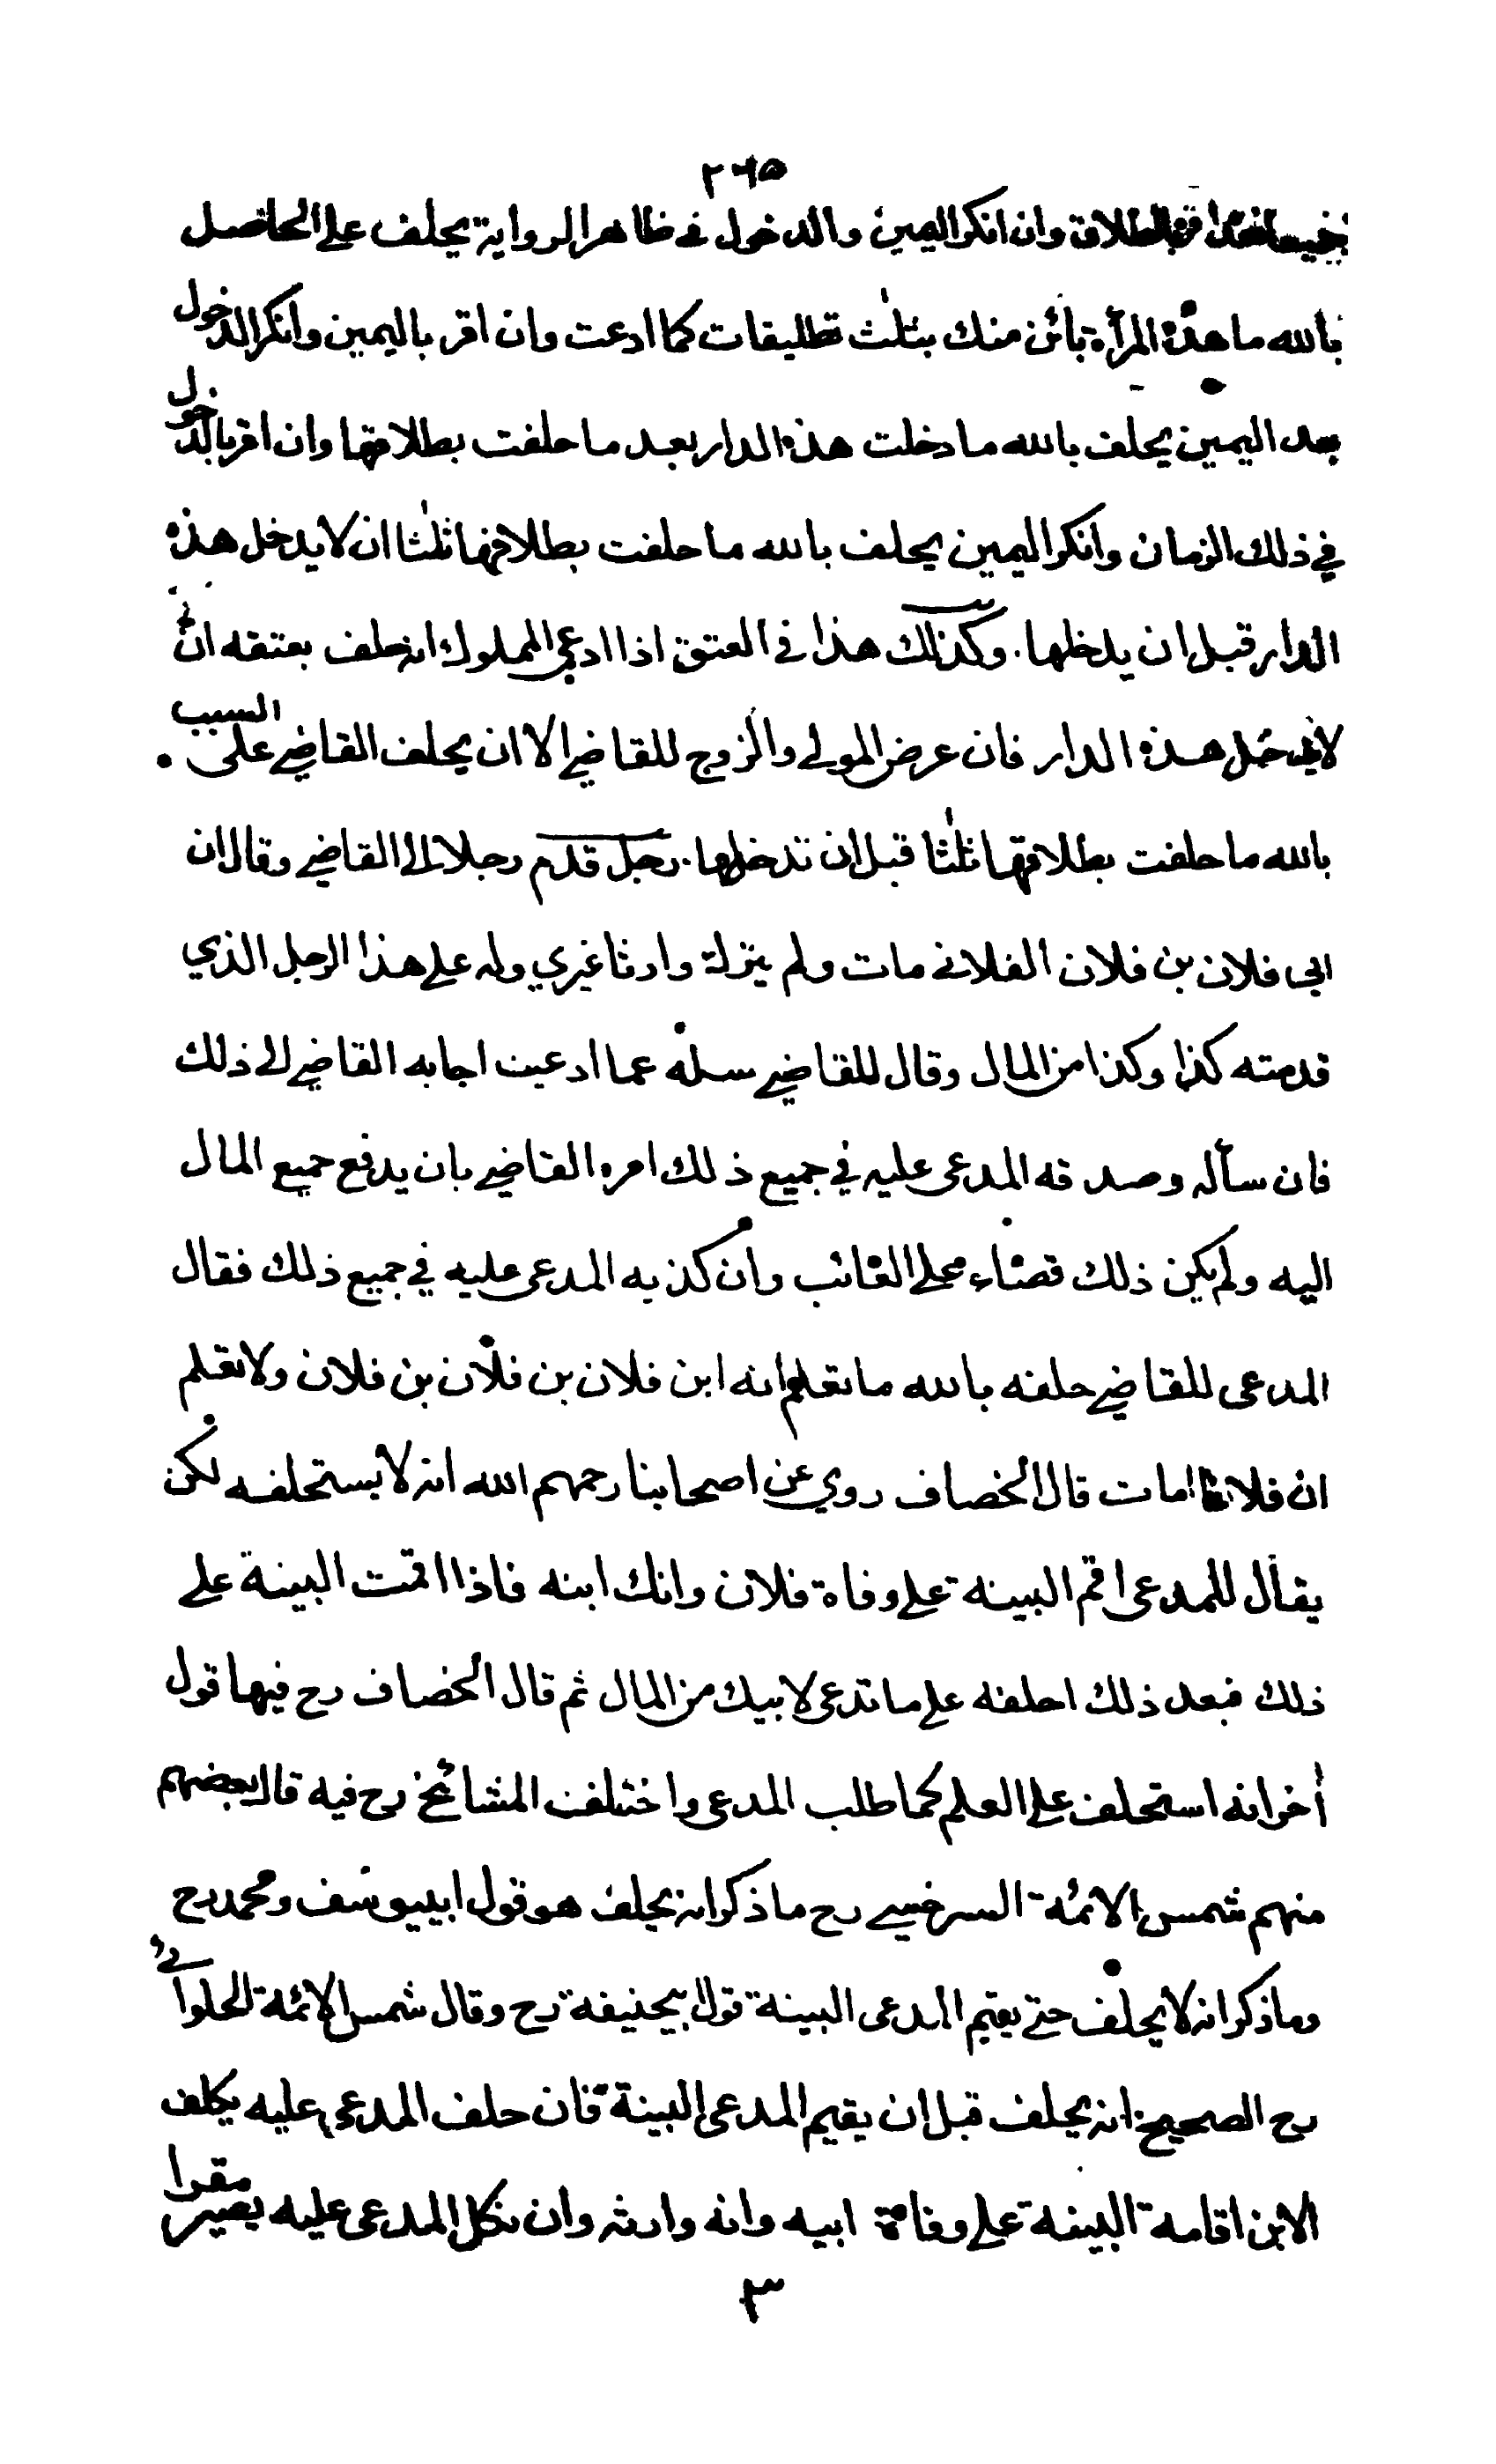 ٢٦٥
فقد اقر بالطلاق وان انكر اليمين والدخول في ظاهر الرواية يحلف على الحاصل
بالله ما هذه المرأة بائن منك بثلث تطليقات كما ادعت وان اقر باليمين وانكر الدخول
بعد اليمين يحلف بالله ما دخلت هذه الدار بعد ما حلفت بطلاقها وان اقر بالدخول
في ذلك الزمان وانكر اليمين يحلف بالله ما حلفت بطلاقها ثلثا ان لا يدخل هذه
الدار قبل ان يدخلها. وكذلك هذا في العتق اذا ادعى المملوك انه حلف بعتقه ان
لا يدخل هذه الدار فان عرض المولى والزوج للقاضي الا ان يحلف القاضي على السبب
بالله ما حلفت بطلاقها ثلثا قبل ان تدخلها. رجل قدم رجلا الى القاضي وقال ان
ابي فلان بن فلان الفلاني مات ولم يترك وارثا غيري وله على هذا الرجل الذي
قدمته كذا وكذا من المال وقال للقاضي سله عما ادعيت اجابه القاضي الى ذلك
فان سأله وصدقه المدعى عليه في جميع ذلك امره القاضي بان يدفع جميع المال
اليه ولم يكن ذلك قضاء على الغائب وان كذبه المدعى عليه في جميع ذلك فقال
المدعى للقاضي حلفه بالله ما تعلم انه ابن فلان بن فلان بن فلان ولا تعلم
ان فلانا مات قال الخصاف روي عن اصحابنا رحمهم الله انه لا يستحلفه لكن
يقال للمدعى اقم البينة على وفاة فلان وانك ابنه فاذا اقمت البينة على
ذلك فبعد ذلك احلفه على ما تدعى لابيك من المال ثم قال الخصاف رح فيها قول
أخر انه استحلف على العلم كما طلب المدعى واختلف المشائخ رح فيه قال بعضهم
منهم شمس الائمة السرخسي رح ما ذكر انه يحلف هو قول ابييوسف ومحمد رح
وما ذكر انه لا يحلف حتى يقيم المدعى البينة قول ابيحنيفة رح وقال شمس الائمة الحلوائي
رح الصحيح انه يحلف قبل ان يقيم المدعى البينة فان حلف المدعى عليه يكلف
الابن اقامة البينة على وفاة ابيه وانه وارثه وان نكل المدعى عليه يصير مقرا
٣